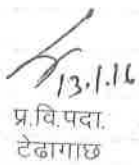 13.1.16
प्र.वि.पदा.
टेढागाछ